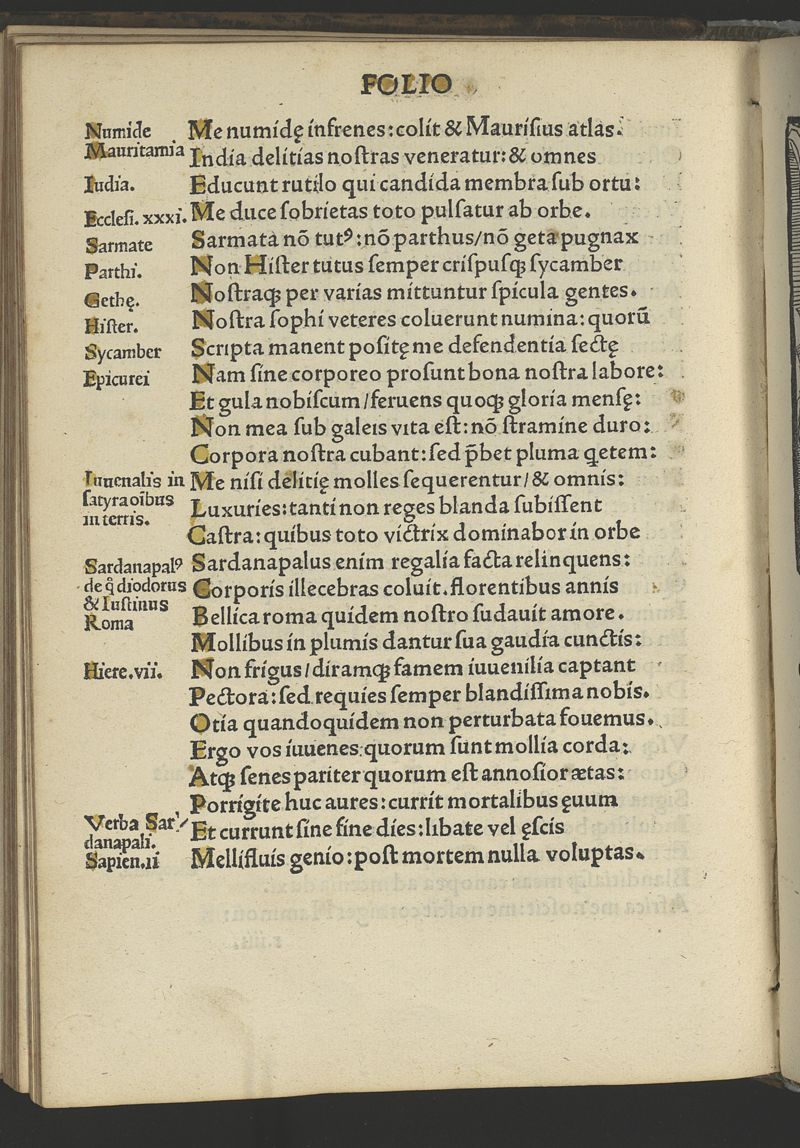 FOLIO
Numidę
Mauritamia
Iudia.
Ecclesi. xxxi.
Sarmate
Parthi.
Gethę.
Hister.
Sycamber
Epicurei
Iuuenalis in
satyra oı̃bus
in terris.
Sardanapalꝰ
de q̃ diodorus
& Iustinus
Roma
Hiere.vii.
Verba Sar⸗
danapali.
Sapien.ii
Me numidę infrenes: colit & Maurisius atlas.
India delitias nostras veneratur: & omnes
Educunt rutilo qui candida membra sub ortu:
Me duce sobrietas toto pulsatur ab orbe.
Sarmata nõ tutꝰ: nõ parthus/ nõ geta pugnax
Non Hister tutus semper crispusqꝫ sycamber
Nostraqꝫ per varias mittuntur spicula gentes.
Nostra sophi veteres coluerunt numina: quorũ
Scripta manent positę me defendentia sectę
Nam sine corporeo prosunt bona nostra labore:
Et gula nobiscum/ feruens quoqꝫ gloria mensę:
Non mea sub galeis vita est: nõ stramine duro:
Corpora nostra cubant: sed p̃bet pluma quietem:
Me nisi delitię molles sequerentur/ & omnis:
Luxuries: tanti non reges blanda subissent
Castra: quibus toto victrix dominabor in orbe
Sardanapalus enim regalia facta relinquens:
Corporis illecebras coluit. florentibus annis
Bellica roma quidem nostro sudauit amore.
Mollibus in plumis dantur sua gaudia cunctis:
Non frigus/ diramqꝫ famem iuuenilia captant
Pectora: sed requies semper blandissima nobis.
Otia quandoquidem non perturbata fouemus.
Ergo vos iuuenes: quorum sunt mollia corda:
Atqꝫ senes pariter quorum est annosior ætas:
Porrigite huc aures: currit mortalibus ęuum
Et currunt sine fine dies: libate vel ęscis
Mellifluis genio: post mortem nulla voluptas.